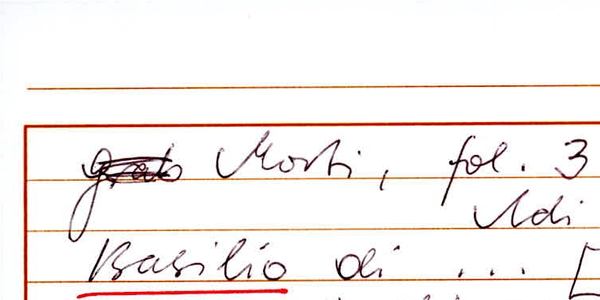 Morti, fol. 3
Adi
Basilio di ... [